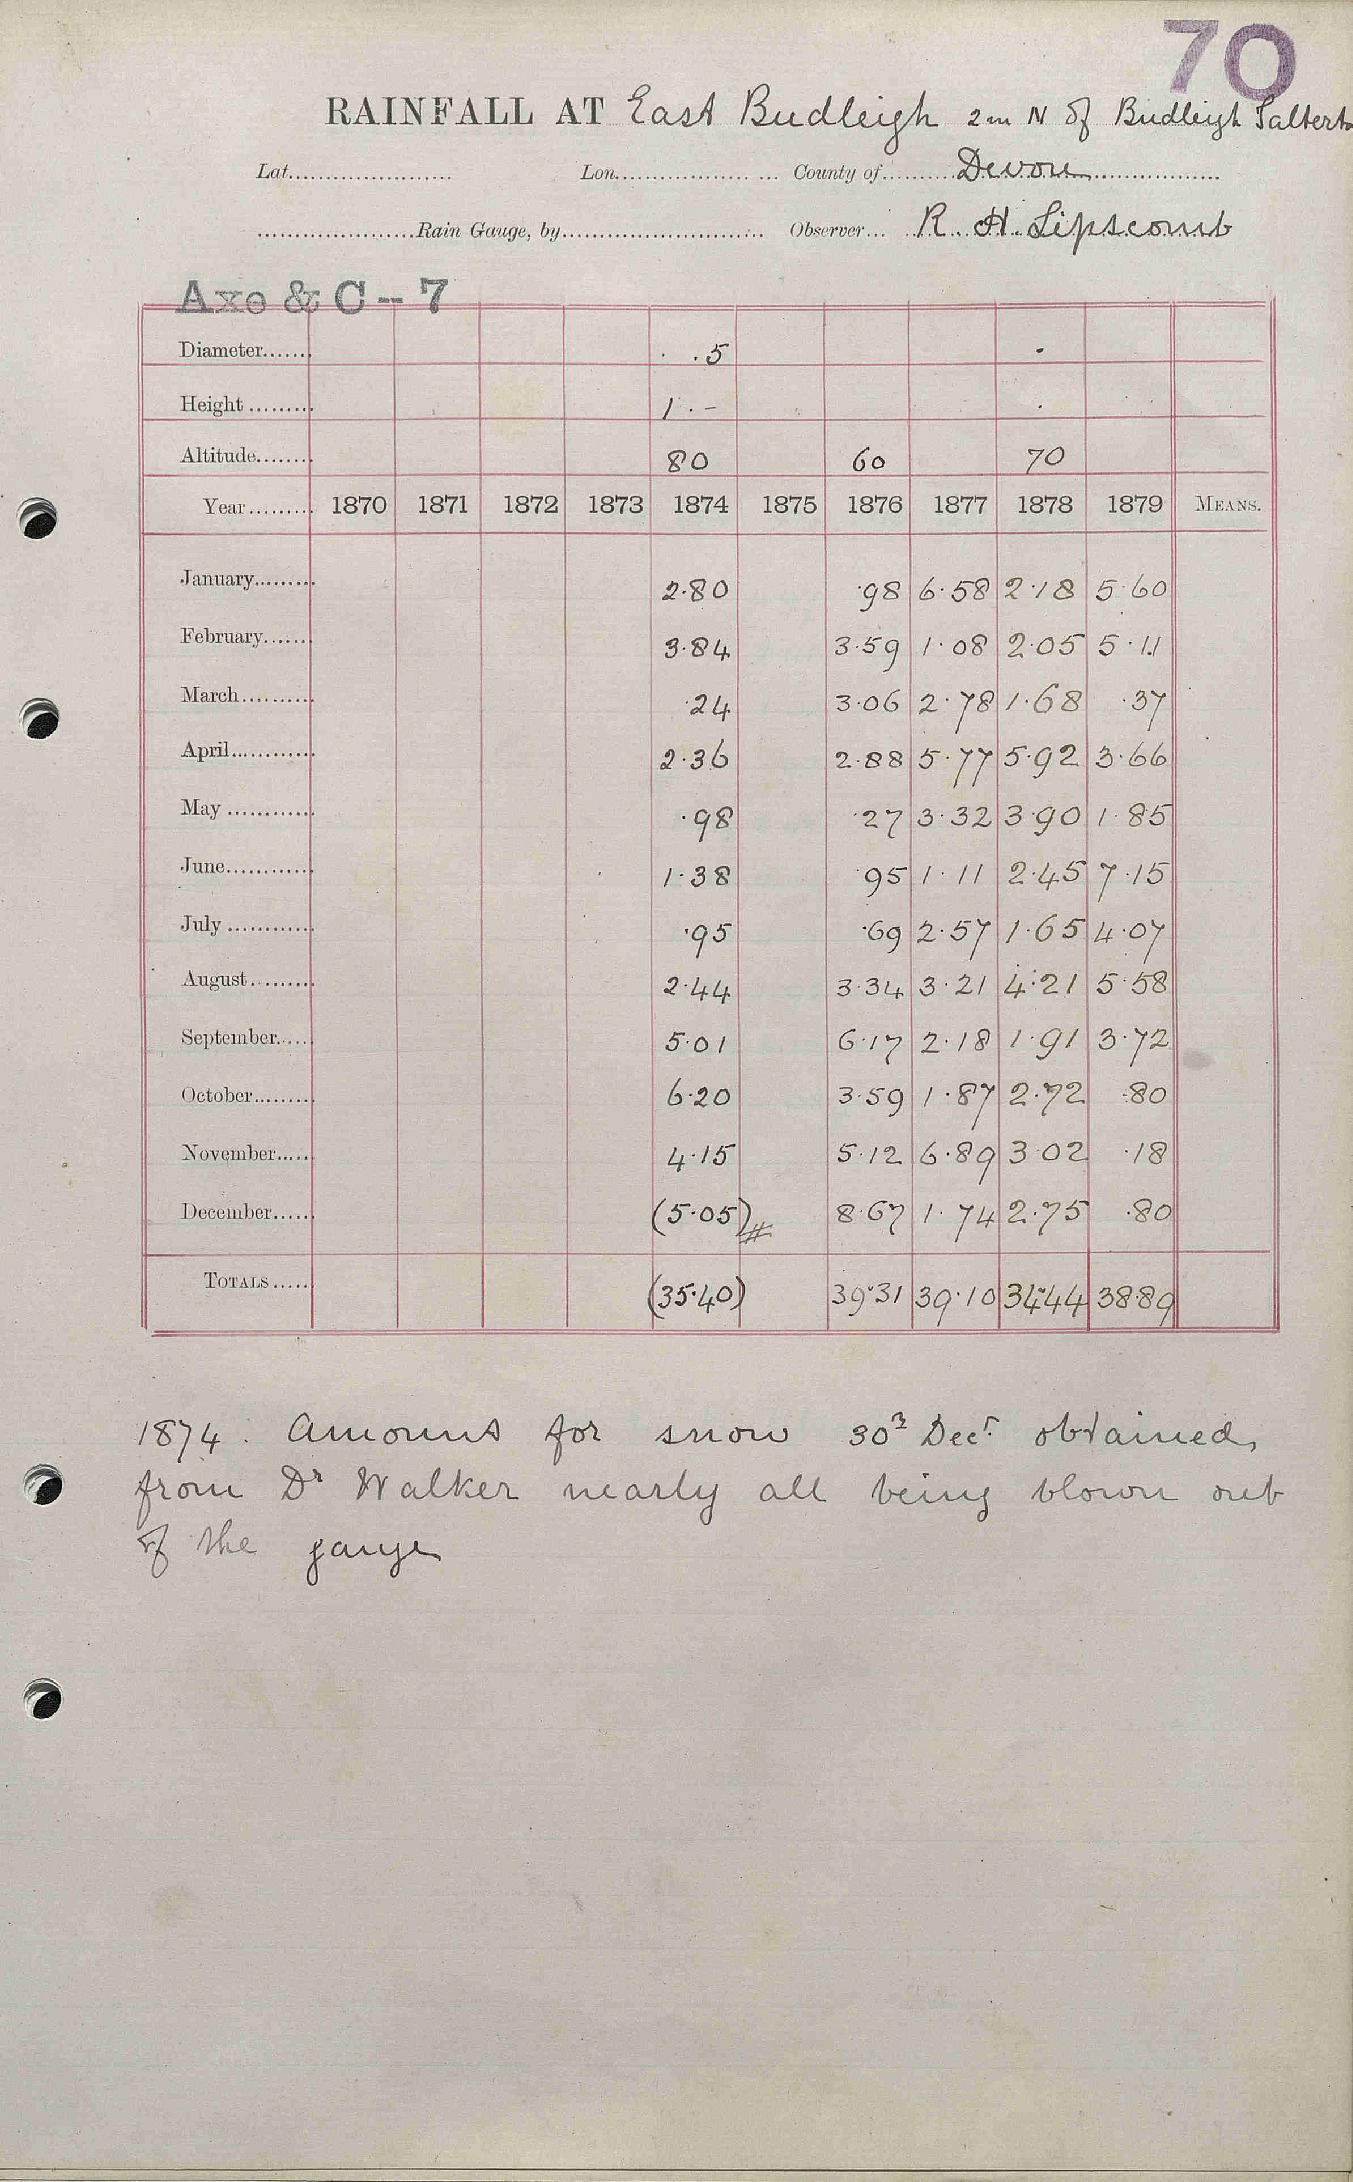 70
RAINFALL AT East Budleigh 2m N of Budleigh Salterto
Lat. Lon. County of Devon
Rain Gauge, by Observer R. H. Lipscomb
Axe & C - 7
Diameter 5
Height 1 . -
Altitude 80 60 70
Year 1870 1871 1872 1873 1874 1875 1876 1877 1878 1879 MEANS.
January 2.80 .98 6.58 2.18 5.60
February 3.84 3.59 1.08 2.05 5.11
March .24 3.06 2.78 1.68 .37
April 2.36 2.88 5.77 5.92 3.66
May .98 .27 3.32 3.90 1.85
June 1.38 .95 1.11 2.45 7.15
July .95 .69 2.57 1.65 4.07
August 2.44 3.34 3.21 4.21 5.58
September 5.01 6.17 2.18 1.91 3.72
October 6.20 3.59 1.87 2.72 .80
November 4.15 5.12 6.89 3.02 .18
December (5.05)# 8.67 1.74 2.75 .80
TOTALS (35.40) 39.31 39.10 34.44 38.89
1874. Amount for snow 30th Decr. obtained
from Dr Walker nearly all being blown out
of the gauge